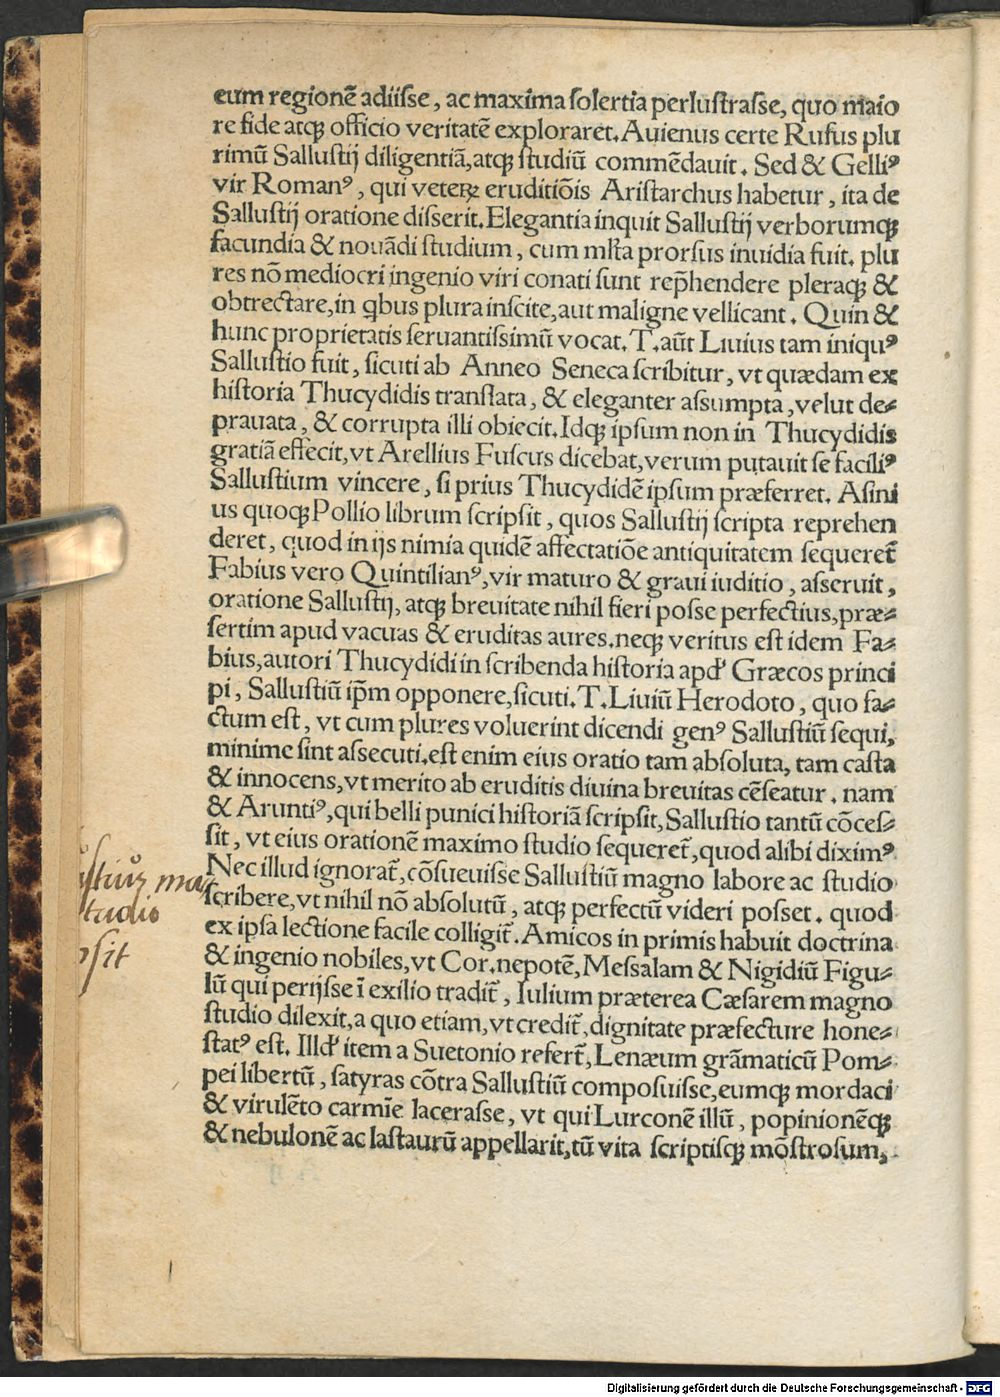 eum regionē adiiſſe, ac maxima ſolertia perluſtraſſe, quo maio
re fide atqꝫ officio veritatē exploraret. Auienus certe Rufus plu
rimū Salluſtij diligentiā, atqꝫ ſtudiū commēdauit. Sed & Gelliꝰ
vir Romanꝰ, qui veteꝝ eruditiōis Ariſtarchus habetur, ita de
Salluſtij oratione diſſerit. Elegantia inquit Salluſtij verborumqꝫ
facundia & nouādi ſtudium, cum ml̄ta prorſus inuidia fuit. plu
res nō mediocri ingenio viri conati ſunt rep̄hendere pleraqꝫ &
obtrectare, in ꝗbus plura inſcite, aut maligne vellicant. Quin &
hunc proprietatis ſeruantiſſimū vocat. T. aūt Liuius tam iniquꝰ
Salluſtio fuit, ſicuti ab Anneo Seneca ſcribitur, vt quædam ex
hiſtoria Thucydidis tranſlata, & eleganter aſſumpta, velut de⸗
prauata, & corrupta illi obiecit. Idqꝫ ipſum non in Thucydidis
gratiā effecit, vt Arellius Fuſcus dicebat, verum putauit ſe faciliꝰ
Salluſtium vincere, ſi prius Thucydidē ipſum præferret. Aſini
us quoqꝫ Pollio librum ſcripſit, quos Salluſtij ſcripta reprehen
deret, quod in ijs nimia quidē affectatiōe antiquitatem ſequeret̄
Fabius vero Quintilianꝰ, vir maturo & graui iuditio, aſſeruit,
oratione Salluſtij, atqꝫ breuitate nihil fieri poſſe perfectius, præ⸗
ſertim apud vacuas & eruditas aures. neqꝫ veritus eſt idem Fa⸗
bius, autori Thucydidi in ſcribenda hiſtoria apd' Græcos princi
pi, Salluſtiū ip̄m opponere, ſicuti. T. Liuiū Herodoto, quo fa⸗
ctum eſt, vt cum plures voluerint dicendi genꝰ Salluſtiū ſequi,
minime ſint aſſecuti. eſt enim eius oratio tam abſoluta, tam caſta
& innocens, vt merito ab eruditis diuina breuitas cēſeatur. nam
& Aruntiꝰ, qui belli punici hiſtoriā ſcripſit, Salluſtio tantū cōceſ⸗
ſit, vt eius orationē maximo ſtudio ſequeret̄, quod alibi diximꝰ.
Nec illud ignorat̄, cōſueuiſſe Salluſtiū magno labore ac ſtudio
ſcribere, vt nihil nō abſolutū, atqꝫ perfectū videri poſſet. quod
ex ipſa lectione facile colligit̄. Amicos in primis habuit doctrina
& ingenio nobiles, vt Cor. nepotē, Meſſalam & Nigidiū Figu⸗
lū qui perijſſe ī exilio tradit̄, Iulium præterea Cæſarem magno
ſtudio dilexit, a quo etiam, vt credit̄, dignitate præfecture hone⸗
ſtatꝰ eſt. Illd' item a Suetonio refert̄, Lenæum grāmaticū Pom⸗
pei libertū, ſatyras cōtra Salluſtiū compoſuiſſe, eumqꝫ mordaci
& virulēto carmīe laceraſſe, vt qui Lurconē illū, popinionēqꝫ
& nebulonē ac laſtaurū appellarit, tū vita ſcriptiſqꝫ mōſtroſum,
Digitalisierung gefördert durch die Deutsche Forschungsgemeinschaft - DFG